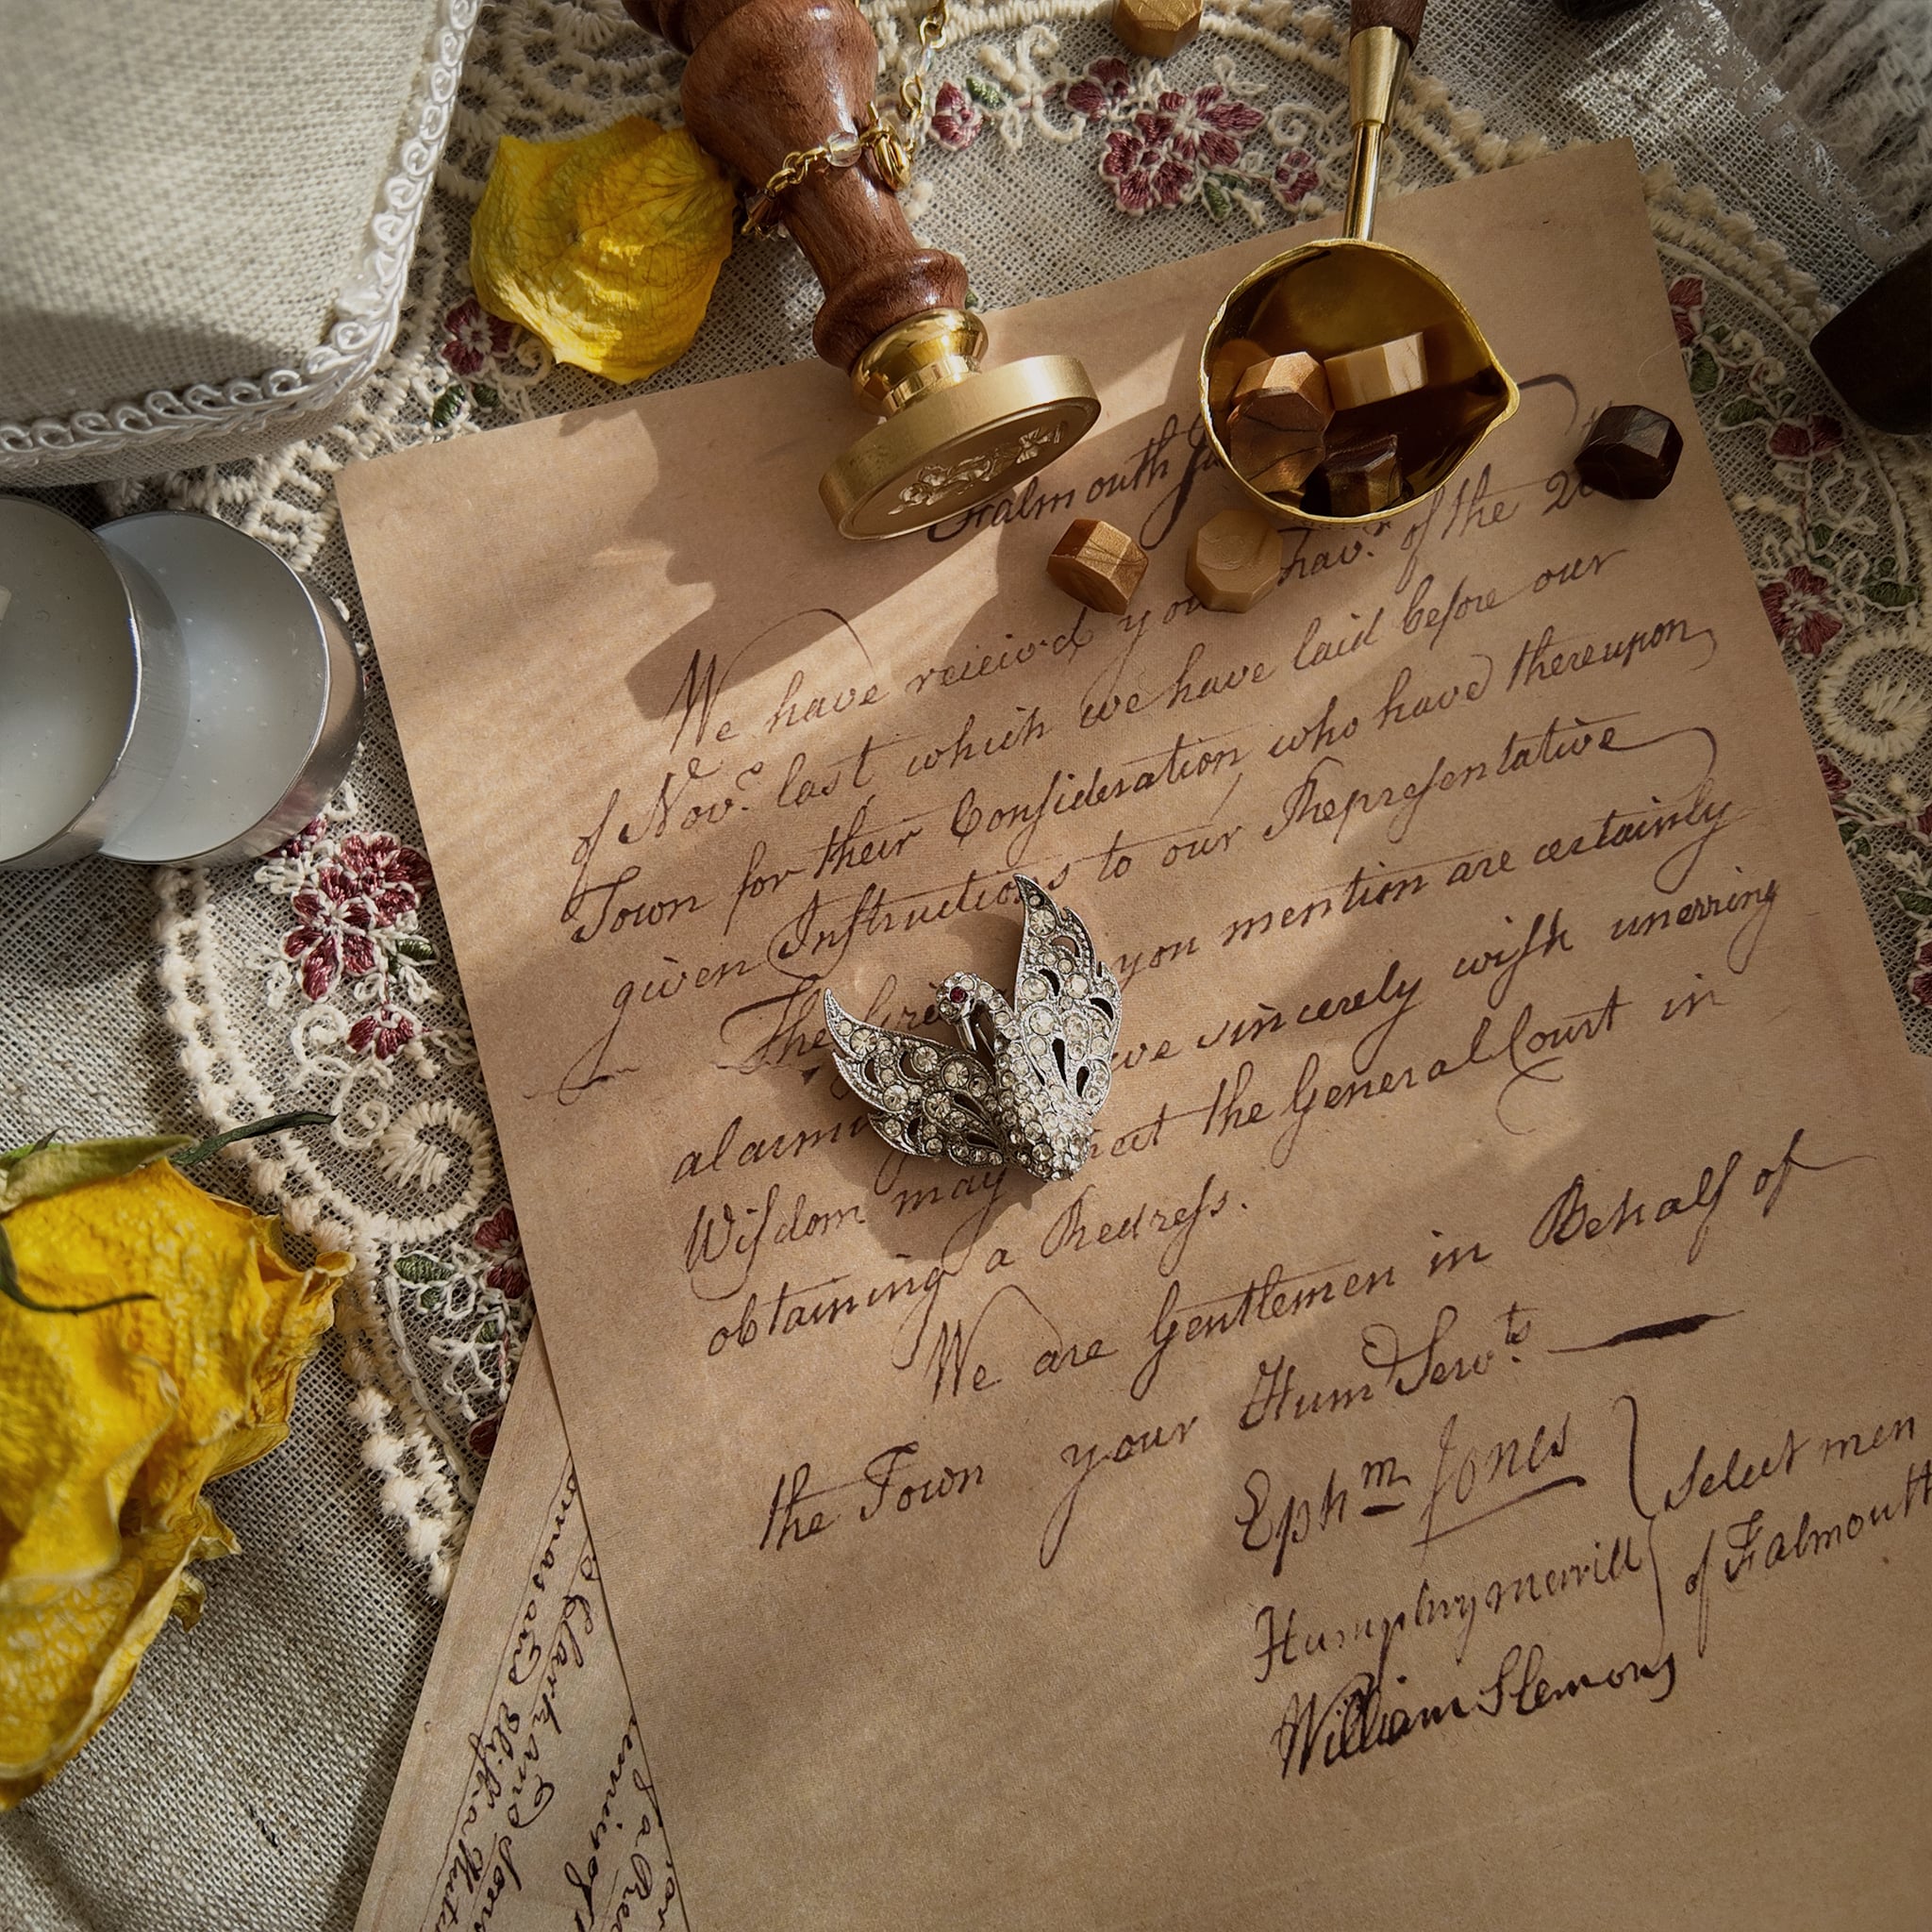 Falmouth
We have received your Fav.r of the 20
of Nov.r last which we have laid before our
Town for their Consideration who have thereupon
given Instructions to our Representative
The you mention are certainly
we sincerely wish unerring
Wisdom may the General Court in
obtaining a Redress.
We are Gentlemen in Behalf of
the Town your Hum.l Serv.ts
Ephm Jones
Humphry merrill
William Slemons
Select men
of Falmouth